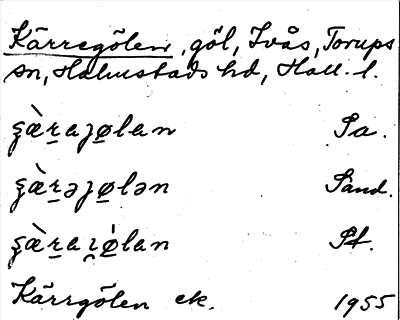 Kärregölen, göl, Ivås, Torups
sn, Halmstads hd, Hall. l.
ʂæ̀r̲aȷø̲lan Sa.
ʂæ̀r̲əȷø̲lən Sand.
ʂæ̀r̲aɿǿ̲lan St.
Kärrgölen ek. 1955